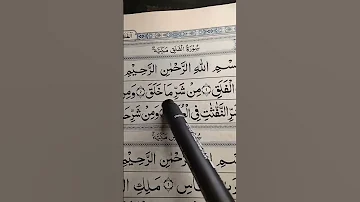 سُوْرَةُ الْفَلَقِ مَكِّيَّةٌ
سْمِ اللّٰهِ الرَّحْمٰنِ الرَّحِيْمِ
الْفَلَقِ ۝١ مِنْ شَرِّ مَا خَلَقَ ۝٢ وَمِنْ
رِّ النَّفّٰثٰتِ فِي الْعُ وَمِنْ شَرِّ
سْمِ اللّٰهِ الرَّحْمٰنِ الرَّحِيْمِ
اسِ ۝١ مَلِكِ ال